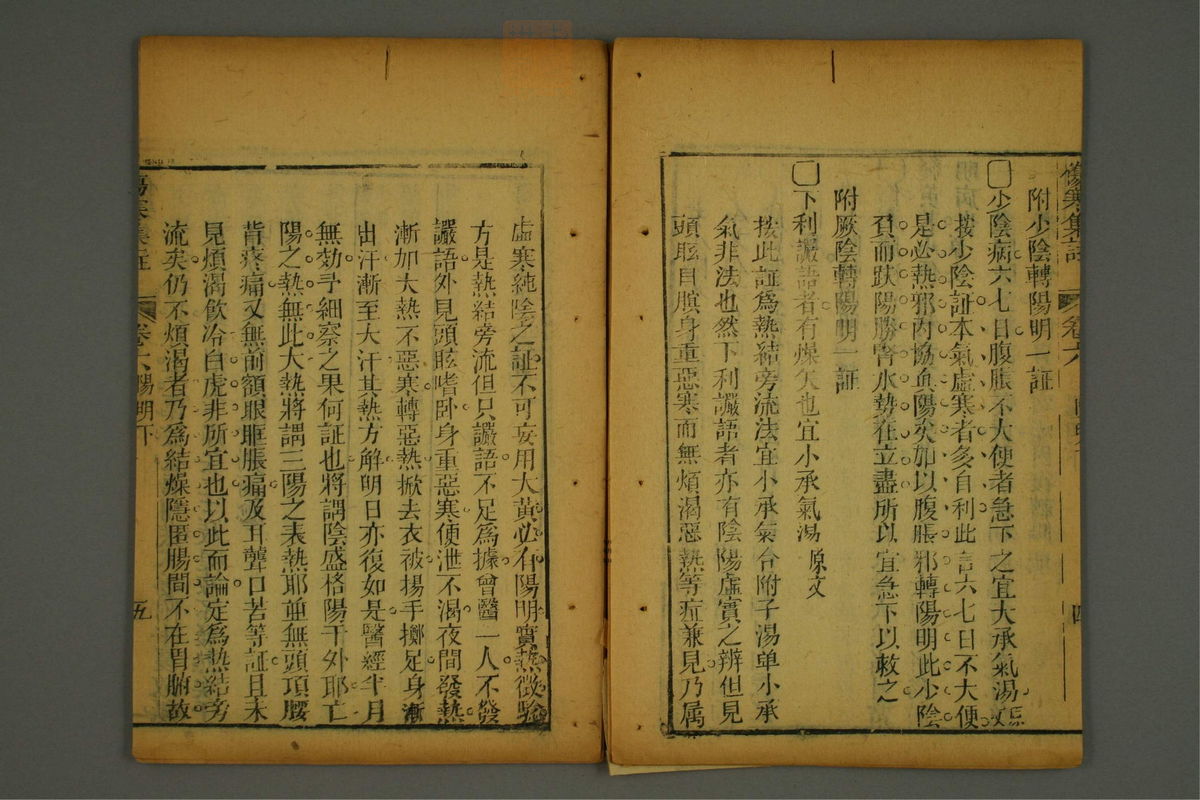 傷寒集註
卷六
附少陰轉陽明一証
少陰病六七日腹脹不大便者急下之宜大承氣湯原文
按少陰証本氣虛寒者多自利此言六七日不大便
是必熱邪內協魚陽矣加以腹脹邪轉陽明此少陰
負而趺陽勝腎水勢在立盡所以宜急下以救之
附厥陰轉陽明一証
下利讝語者有燥矢也宜小承氣湯 原文
按此証為熱結旁流法宜小承氣合附子湯单小承
氣非法也然下利讝語者亦有陰陽虛實之辨但見
頭眩目瞑身重惡寒而無煩渴惡熱等症兼見乃属
虛寒純陰之証不可妄用大黃必有陽明實熱徵驗
方是熱結旁流但只讝語不足為據曾醫一人不發
讝語外見頭眩嗜卧身重惡寒便泄不渴夜間發熱
漸加大熱不惡寒轉惡熱掀去衣被揚手擲足身漸
出汗漸至大汗其熱方解明日亦復如是醫經半月
無効予細察之果何証也將謂陰盛格陽于外耶亡
陽之熱無此大熱將謂三陽之表熱耶並無頭項腰
背疼痛又無前額眼眶脹痛及耳聾口苦等証且未
見煩渴飲冷白虎非所宜也以此而論定為熱結旁
流矣仍不煩渴者乃為結燥隱匿腸間不在胃腑故
傷寒集註
卷六 陽明下
五